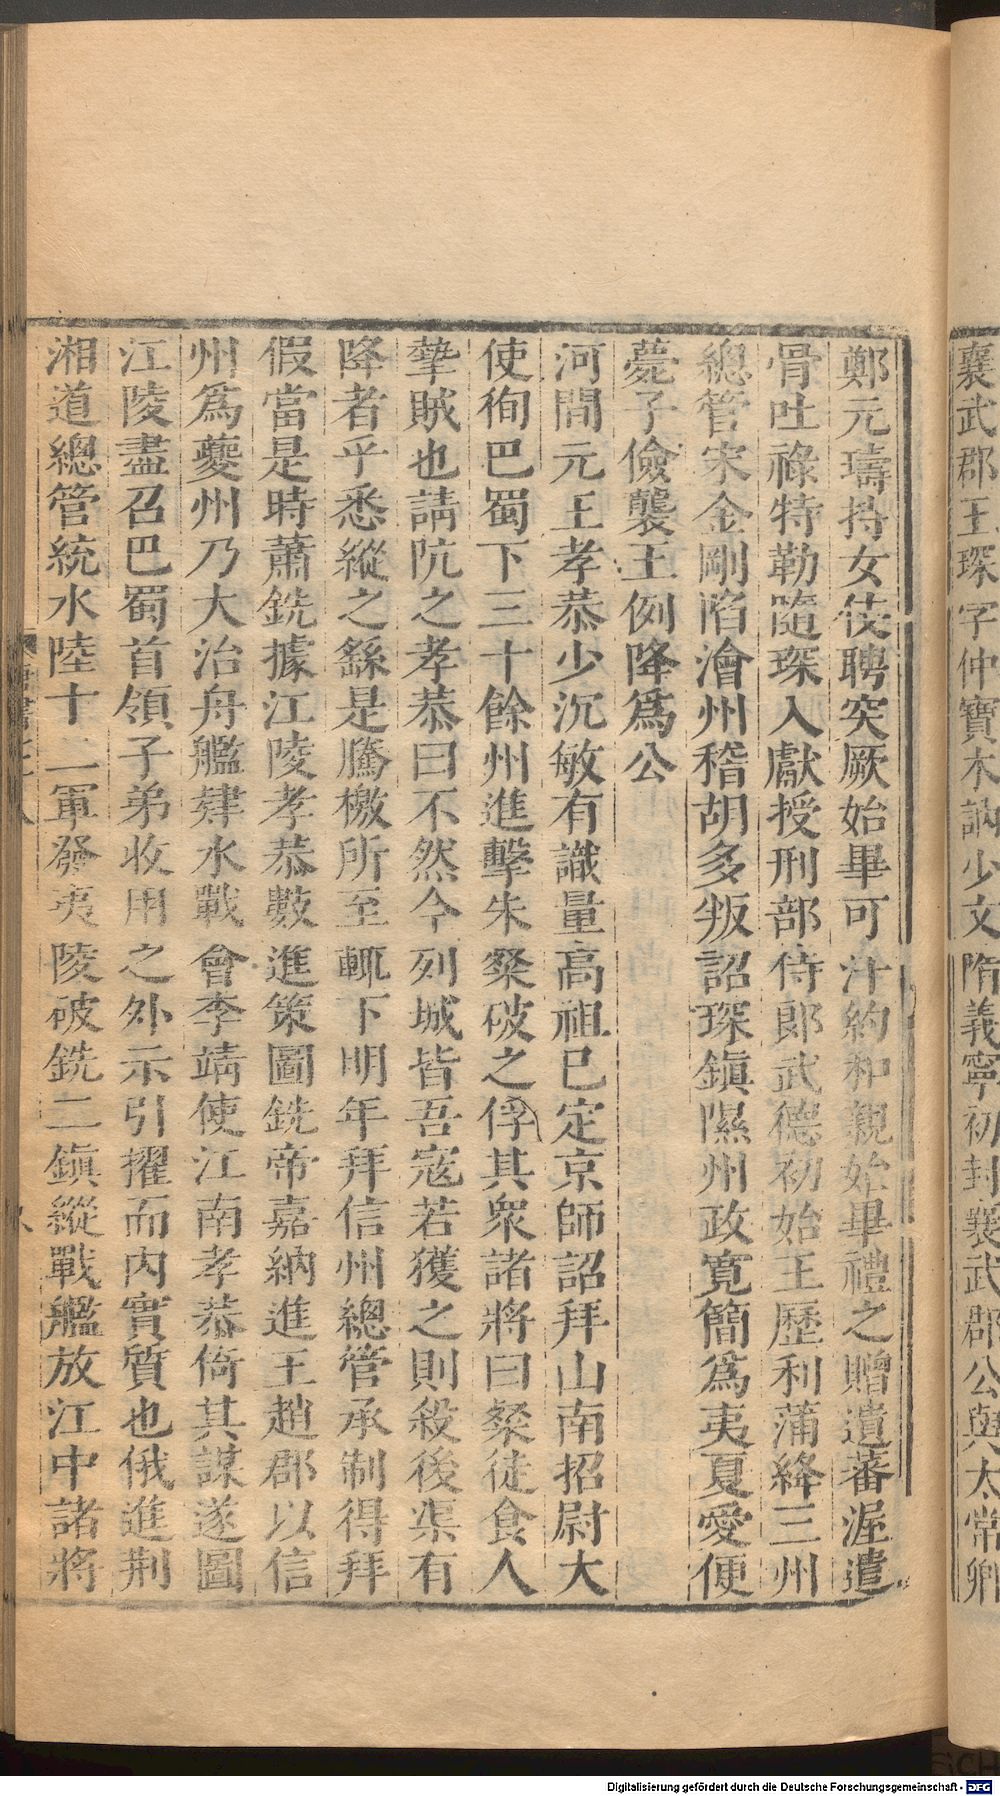 襄武郡王琛字仲寶木訥少文隋義寧初封襄武郡公與太常卿
鄭元璹持女伎聘突厥始畢可汗約和親始畢禮之贈遺蕃渥遣
骨吐祿特勒隨琛入獻授刑部侍郎武德初始王歷利蒲絳三州
總管宋金剛陷澮州稽胡多叛詔琛鎭隰州政寬簡爲夷夏愛便
薨子儉襲王例降爲公
河間元王孝恭少沉敏有識量高祖已定京師詔拜山南招尉大
使徇巴蜀下三十餘州進擊朱粲破之俘其衆諸將曰粲徒食人
摯賊也請阬之孝恭曰不然今列城皆吾寇若獲之則殺後渠有
降者乎悉縱之繇是騰檄所至輒下明年拜信州總管承制得拜
假當是時蕭銑據江陵孝恭數進策圖銑帝嘉納進王趙郡以信
州爲夔州乃大治舟艦肄水戰會李靖使江南孝恭倚其謀遂圖
江陵盡召巴蜀首領子弟收用之外示引擢而內實質也俄進荆
湘道總管統水陸十二軍發夷陵破銑二鎭縱戰艦放江中諸將
Digitalisierung gefördert durch die Deutsche Forschungsgemeinschaft - DFG